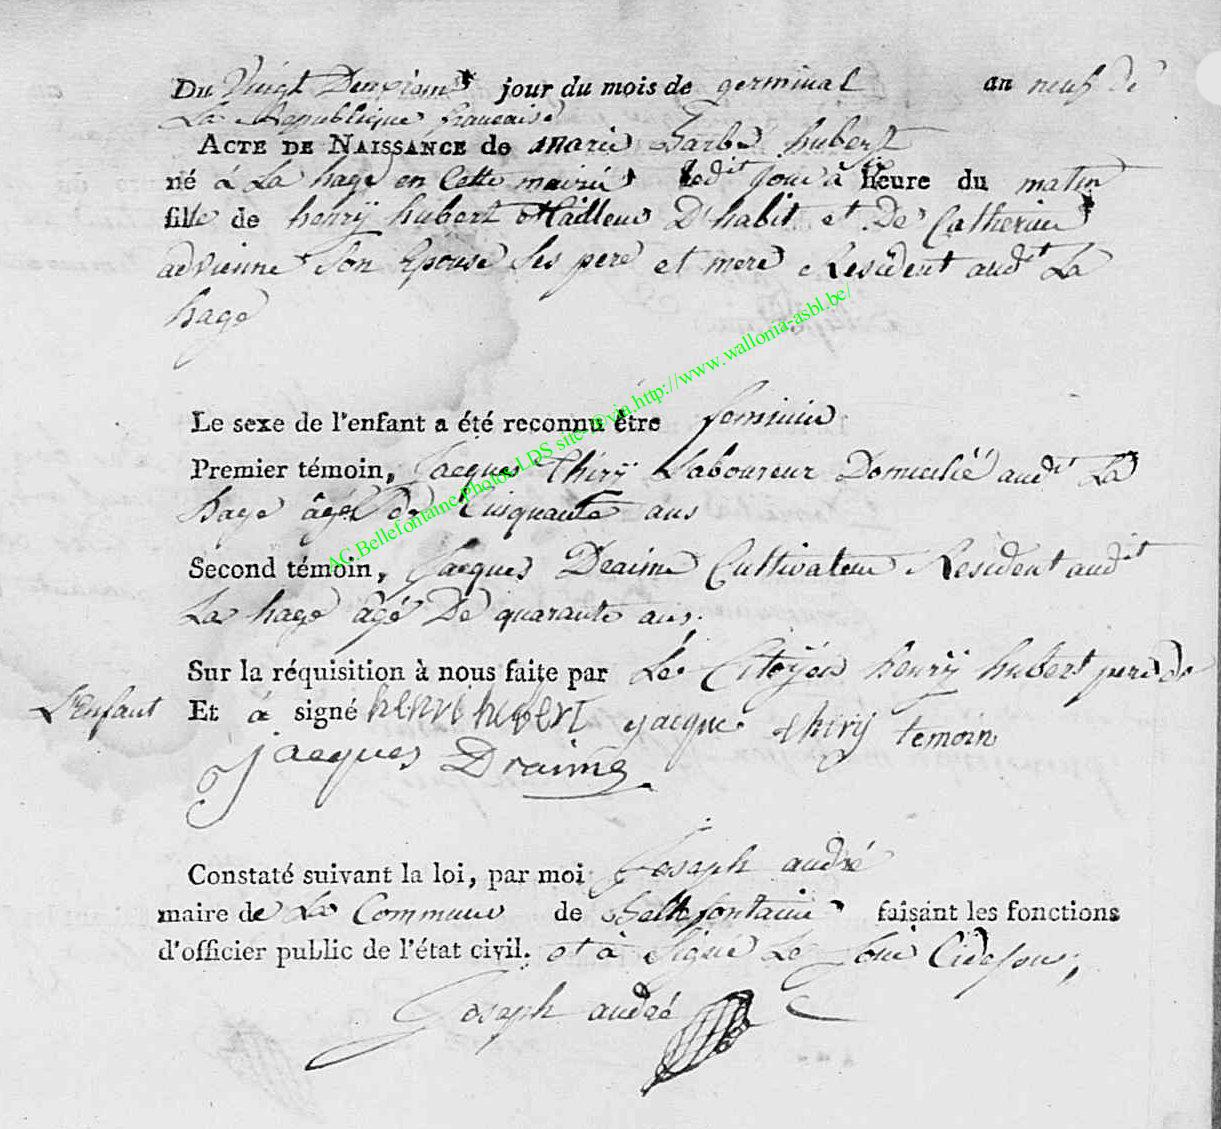 Du Vingt Deuxieme jour du mois de germinal an neuf de
La Republique francaise
ACTE DE NAISSANCE de Marie barbe hubert
né á La hage en Cette mairie ledit Jour à heure du matin
fille de henrÿ hubert tailleur D'habit et De Catherine
advienne Son Epouse Ses pere et mere Resident audt La
hage
Le sexe de l'enfant a été reconnu être feminin
Premier témoin, Jacques thirÿ Laboureur Domicilié audt La
hage âgé De Cinquante ans
Second témoin, Jacques Draime Cultivateur Resident audit
La hage âgé De quarante ans;
Sur la réquisition à nous faite par Le Citoÿen henrÿ hubert pere de
L'Enfant Et á signé henri hubert jacque thiry temoin
jacques Draime
Constaté suivant la loi, par moi Joseph andré
maire de La Commune de Bellefontaine faisant les fonctions
d'officier public de l'état civil. et à Signé Le Jour Cidesus,
Joseph andré
AC.Bellefontaine.Photos.LDS site.®via.http://www.wallonia-asbl.be/